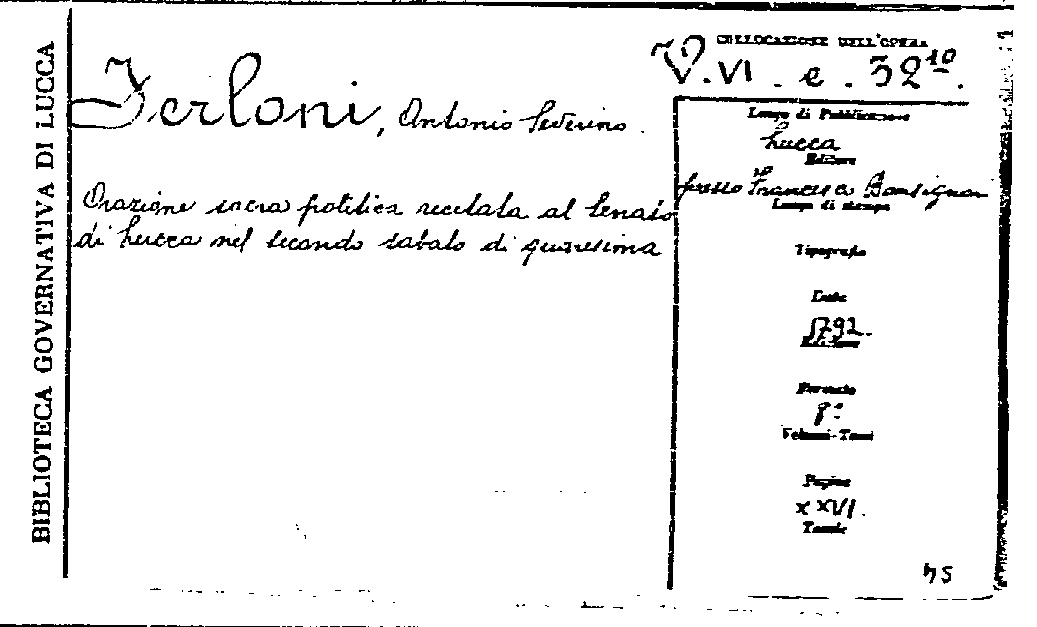 BIBLIOTECA GOVERNATIVA DI LUCCA
COLLOCAZIONE DELL'OPERA
V. VI. e. 32 10.
Ferloni, Antonio Severino.
Orazione sacra politica recitata al Senato
di Lucca nel secondo sabato di quaresima
Luogo di Pubblicazione
Lucca
Editore
presso Francesco Bonsignori
Luogo di stampa
Tipografia
Data
1792.
Edizione
Formato
8º
Volumi-Tomi
Pagine
XXVI.
Tavole